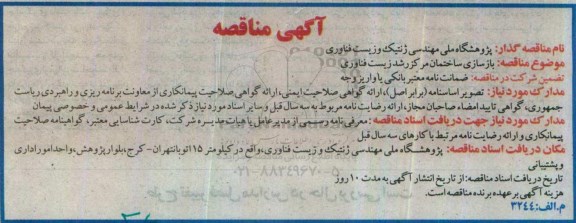 آگهی مناقصه
نام مناقصه گذار: پژوهشگاه ملی مهندسی ژنتیک و زیست فناوری
موضوع مناقصه: بازسازی ساختمان مرکز رشد زیست فناوری
تضمین شرکت در مناقصه: ضمانت نامه معتبر بانکی یا واریز وجه
مدارک مورد نیاز: تصویر اساسنامه (برابر اصل)، ارائه گواهی صلاحیت ایمنی، ارائه گواهی صلاحیت پیمانکاری از معاونت برنامه ریزی و راهبردی ریاست
جمهوری، گواهی تایید امضاء صاحبان مجاز، ارائه رضایت نامه مربوط به سه سال قبل و سایر اسناد مورد نیاز ذکر شده در شرایط عمومی و خصوصی پیمان
مدارک مورد نیاز جهت دریافت اسناد مناقصه: معرفی نامه رسمی از مدیر عامل یا هیات مدیره شرکت، کارت شناسایی معتبر، گواهینامه صلاحیت
پیمانکاری و ارائه رضایت نامه مرتبط با کارهای سه سال قبل
مکان دریافت اسناد مناقصه: پژوهشگاه ملی مهندسی ژنتیک و زیست فناوری، واقع در کیلومتر ۱۵ اتوبان تهران - کرج، بلوار پژوهش، واحد امور اداری
و پشتیبانی
تاریخ دریافت اسناد مناقصه: از تاریخ انتشار آگهی به مدت ۱۰ روز
هزینه آگهی بر عهده برنده مناقصه است.
م.الف: ۳۲۴۴